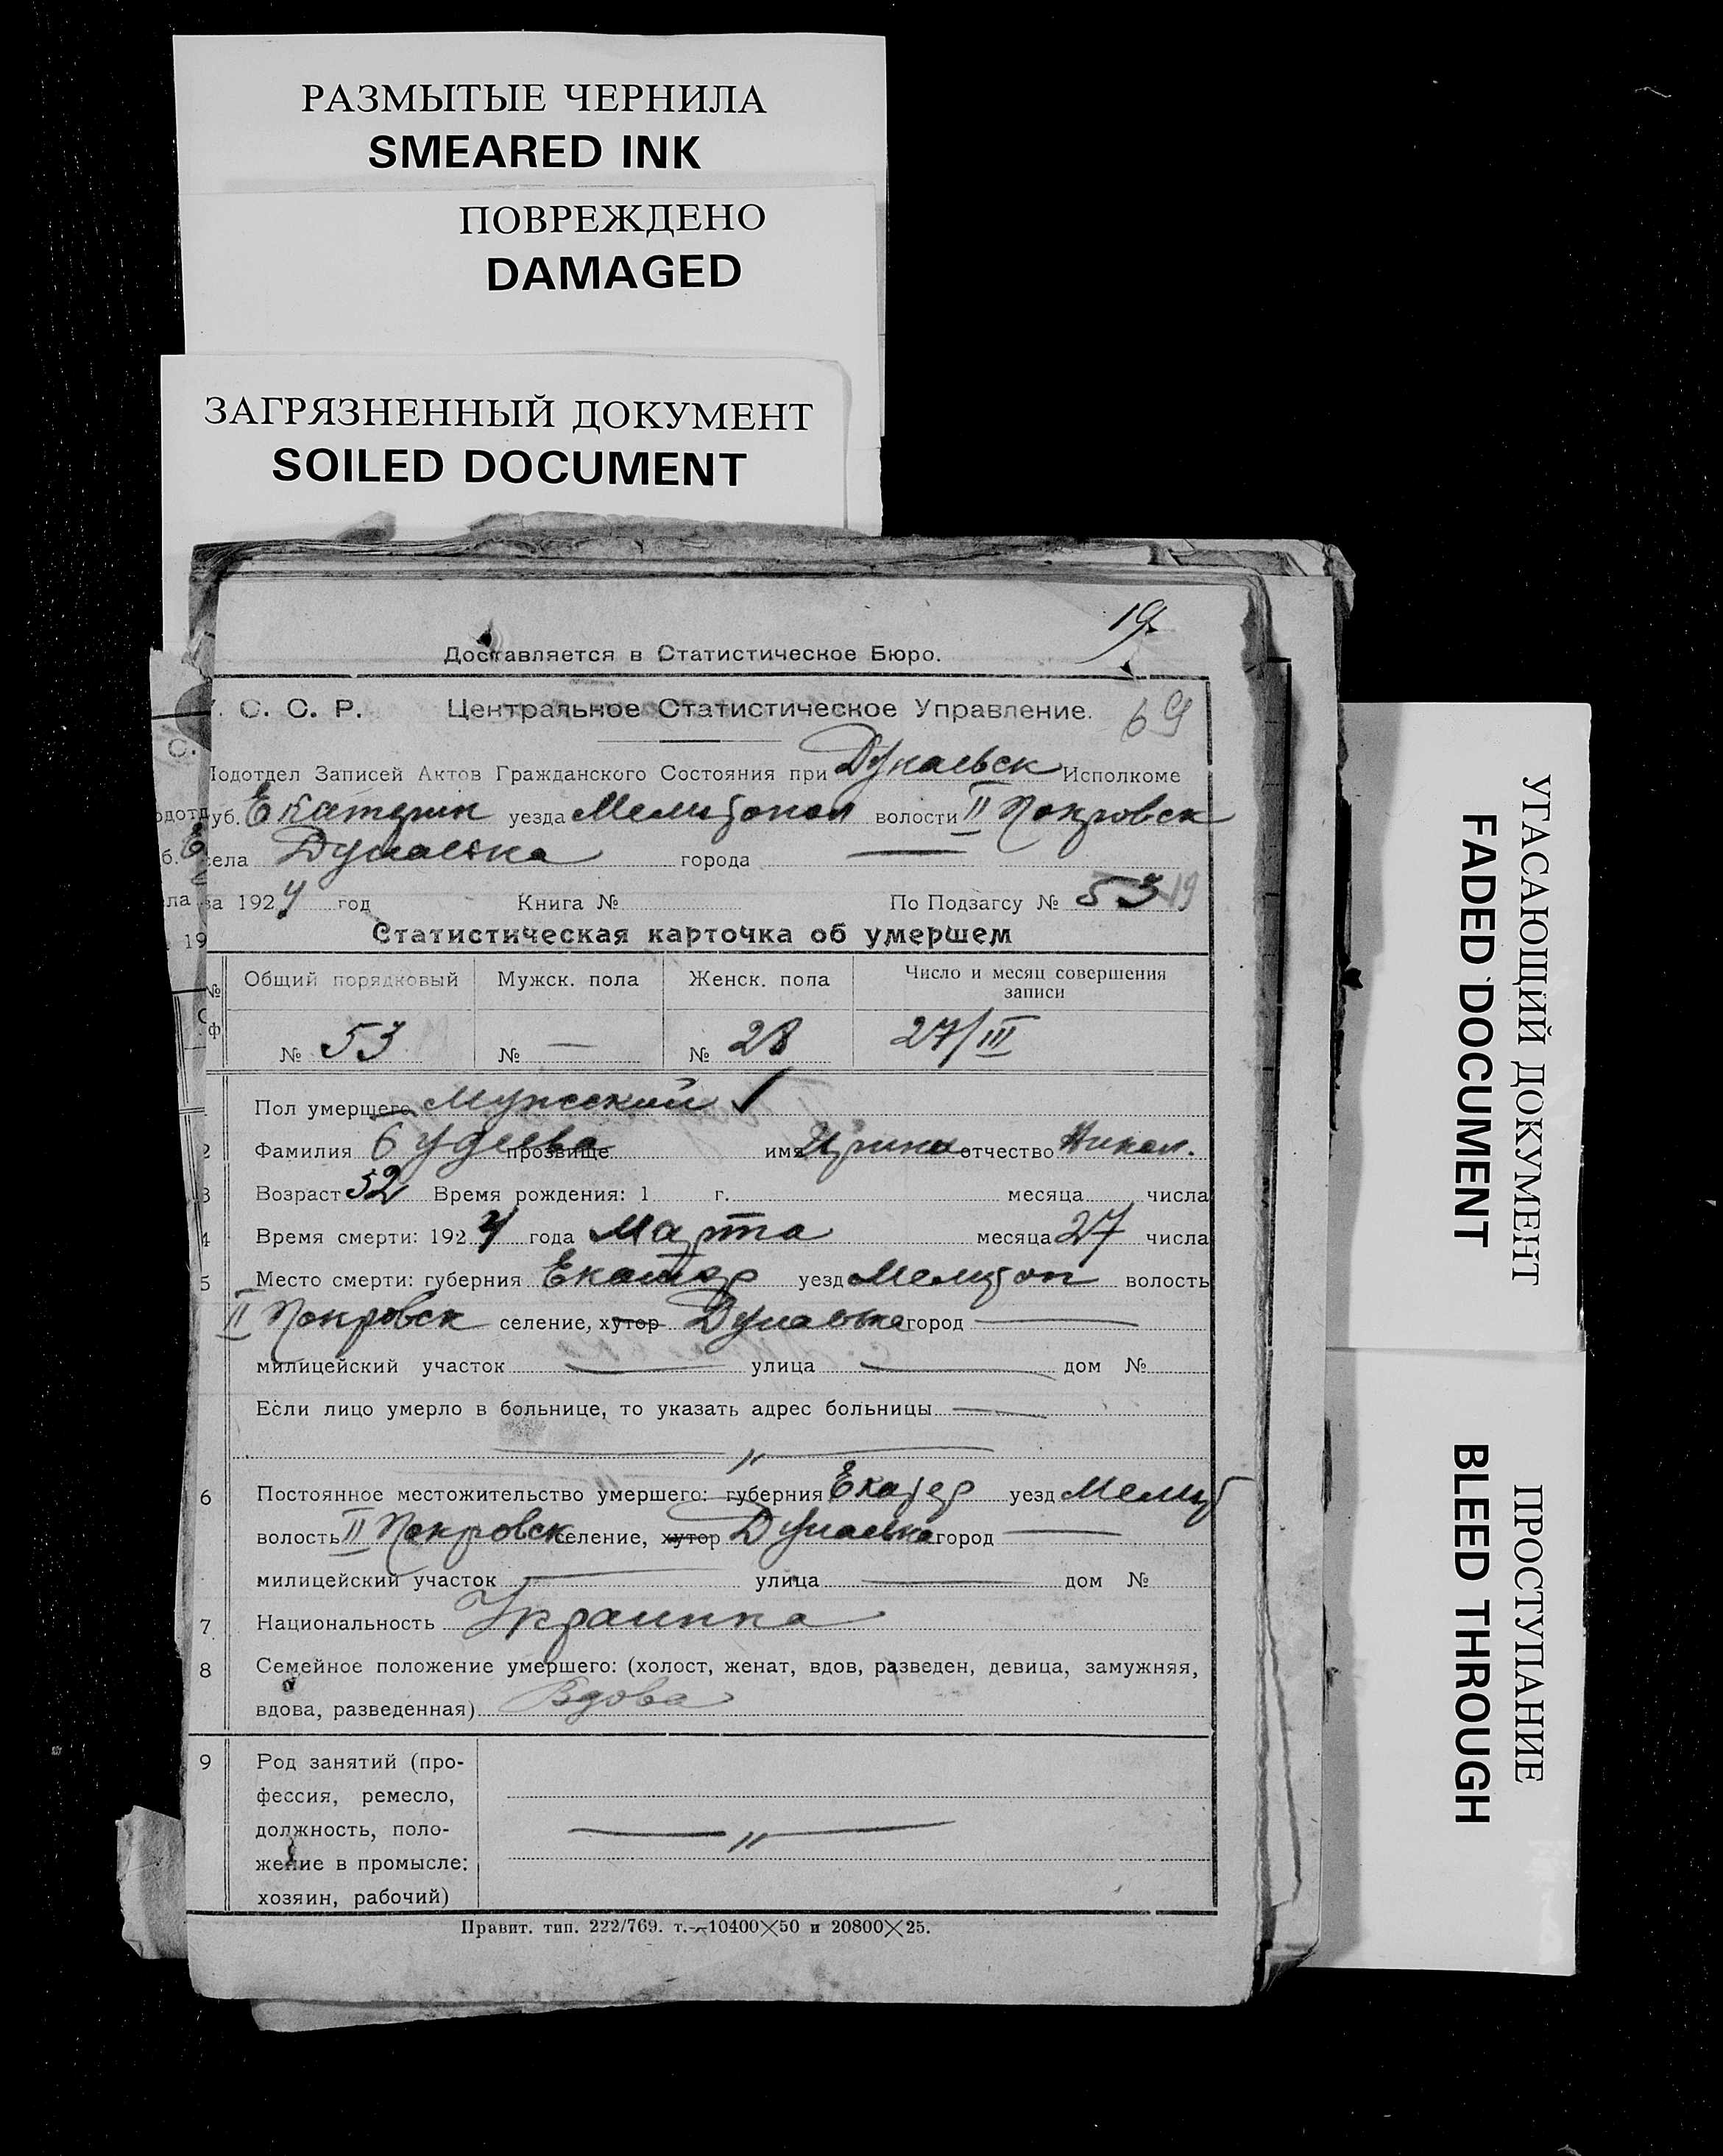 РАЗМЫТЫЕ ЧЕРНИЛА
SMEARED INK
ПОВРЕЖДЕНО
DAMAGED
ЗАГРЯЗНЕННЫЙ ДОКУМЕНТ
SOILED DOCUMENT
19
Доставляется в Статистическое Бюро.
С. С. Р. Центральное Статистическое Управление. 69
Подотдел Записей Актов Гражданского Состояния при Дунаевск Исполкоме
уб. Екатерин уезда Мелитопол волости II Покровск
села Дунаевка города —
за 1924 год Книга № По Подзагсу № 53 19
Статистическая карточка об умершем
Общий порядковый Мужск. пола Женск. пола Число и месяц совершения записи
№ 53 № — № 28 27/III
Пол умершего Мужской
2 Фамилия Будеева прозвище имя Ирина отчество Никол.
3 Возраст 52 Время рождения: 1 г. месяца числа
4 Время смерти: 1924 года Марта месяца 27 числа
5 Место смерти: губерния Екатер уезд Мелитоп волость
II Покровск селение, хутор Дунаевка город —
милицейский участок — улица — дом №
Если лицо умерло в больнице, то указать адрес больницы —
— " —
6 Постоянное местожительство умершего: губерния Екатер уезд Мелит
волость II Покровск селение, хутор Дунаевка город —
милицейский участок — улица — дом №
7 Национальность Украинка
8 Семейное положение умершего: (холост, женат, вдов, разведен, девица, замужняя,
вдова, разведенная) Вдова
9 Род занятий (про-
фессия, ремесло,
должность, поло-
жение в промысле:
хозяин, рабочий)
— " —
Правит. тип. 222/769. т.—10400×50 и 20800×25.
УГАСАЮЩИЙ ДОКУМЕНТ
FADED DOCUMENT
ПРОСТУПАНИЕ
BLEED THROUGH